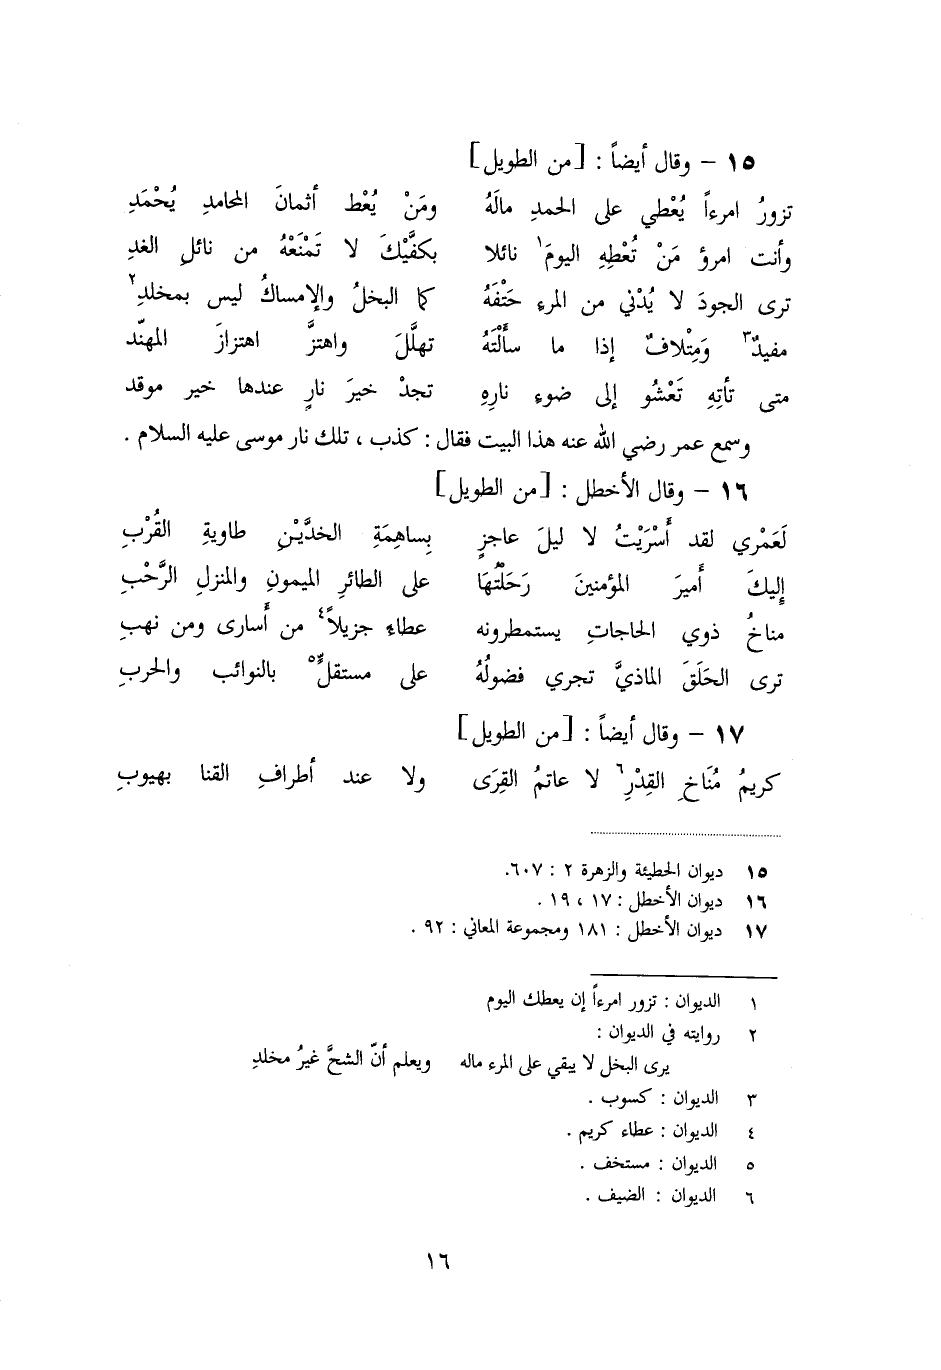 ١٥ – وقال أيضاً : [من الطويل]
تزورُ امرءاً يُعْطي على الحمدِ مالَهُ ومَنْ يُعْط أثمانَ المحامدِ يُحْمَدِ
وأنت امرؤ مَنْ تُعْطِهِ اليومَ١ نائلا بكفَّيْكَ لا تَمْنَعْهُ من نائلِ الغدِ
ترى الجودَ لا يُدْني من المرءِ حَتْفَهُ كما البخلُ والإمساكُ ليس بمخلدِ٢
مفيدٌ٣ وَمِتْلافٌ إذا ما سألْتَهُ تهلَّلَ واهتزَّ اهتزازَ المهنّد
متى تأتِهِ تَعْشُو إلى ضوءِ نارِهِ تجدْ خيرَ نارٍ عندها خير موقد
وسمع عمر رضي الله عنه هذا البيت فقال : كذب ، تلك نار موسى عليه السلام .
١٦ – وقال الأخطل : [من الطويل]
لَعَمْري لقد أَسْرَيْتُ لا ليلَ عاجزٍ بِساهِمَةِ الخدَّيْنِ طاويةِ القُرْبِ
إليكَ أميرَ المؤمنينَ رَحَلْتُهَا على الطائرِ الميمونِ والمنزلِ الرَّحْبِ
مناخُ ذوي الحاجاتِ يستمطرونه عطاء جزيلاً٤ من أسارى ومن نهبِ
ترى الحَلَقَ الماذيَّ تجري فضولُهُ على مستقلٍّ٥ بالنوائب والحربِ
١٧ – وقال أيضاً : [من الطويل]
كريمُ مُنَاخِ القِدْرِ٦ لا عاتمُ القِرَى ولا عند أطرافِ القنا بهيوبِ
١٥ ديوان الحطيئة والزهرة ٢ : ٦٠٧.
١٦ ديوان الأخطل : ١٧ ، ١٩ .
١٧ ديوان الأخطل : ١٨١ ومجموعة المعاني : ٩٢ .
١ الديوان : تزور امرءاً إن يعطك اليوم
٢ روايته في الديوان :
يرى البخل لا يبقي على المرء ماله ويعلم أنّ الشحَّ غيرُ مخلدِ
٣ الديوان : كسوب .
٤ الديوان : عطاء كريم .
٥ الديوان : مستخف .
٦ الديوان : الضيف .
١٦